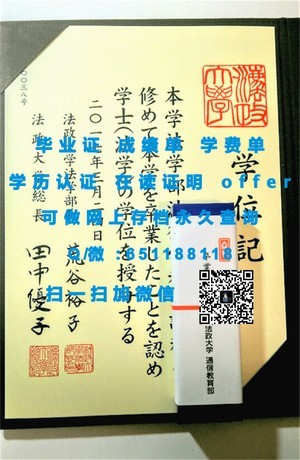 毕业证 成绩单 学费单
学历认证 在读证明 offer
可做网上存档永久查册
Q/微:651188118
扫一扫加微信
学位記
本学法学部
修めて本学を卒業したことを認め
学士(法学)の学位を授与する
法政大学法学部長 荒谷裕子
法政大学総長 田中優子
〇〇三八号
法政大学 通信教育部